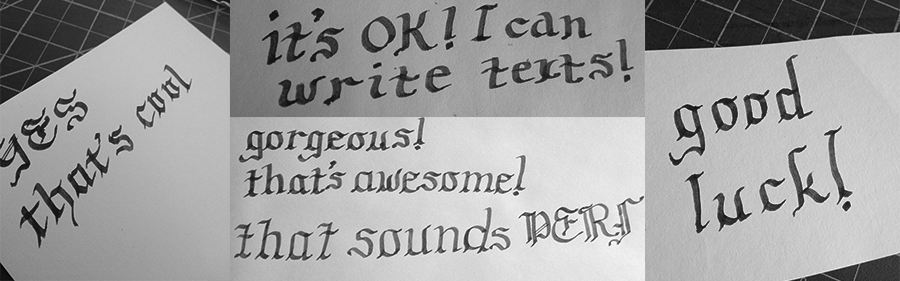 YES
that's cool
it's OK! I can
write texts!
gorgeous!
that's awesome!
that sounds PERF
good
luck!